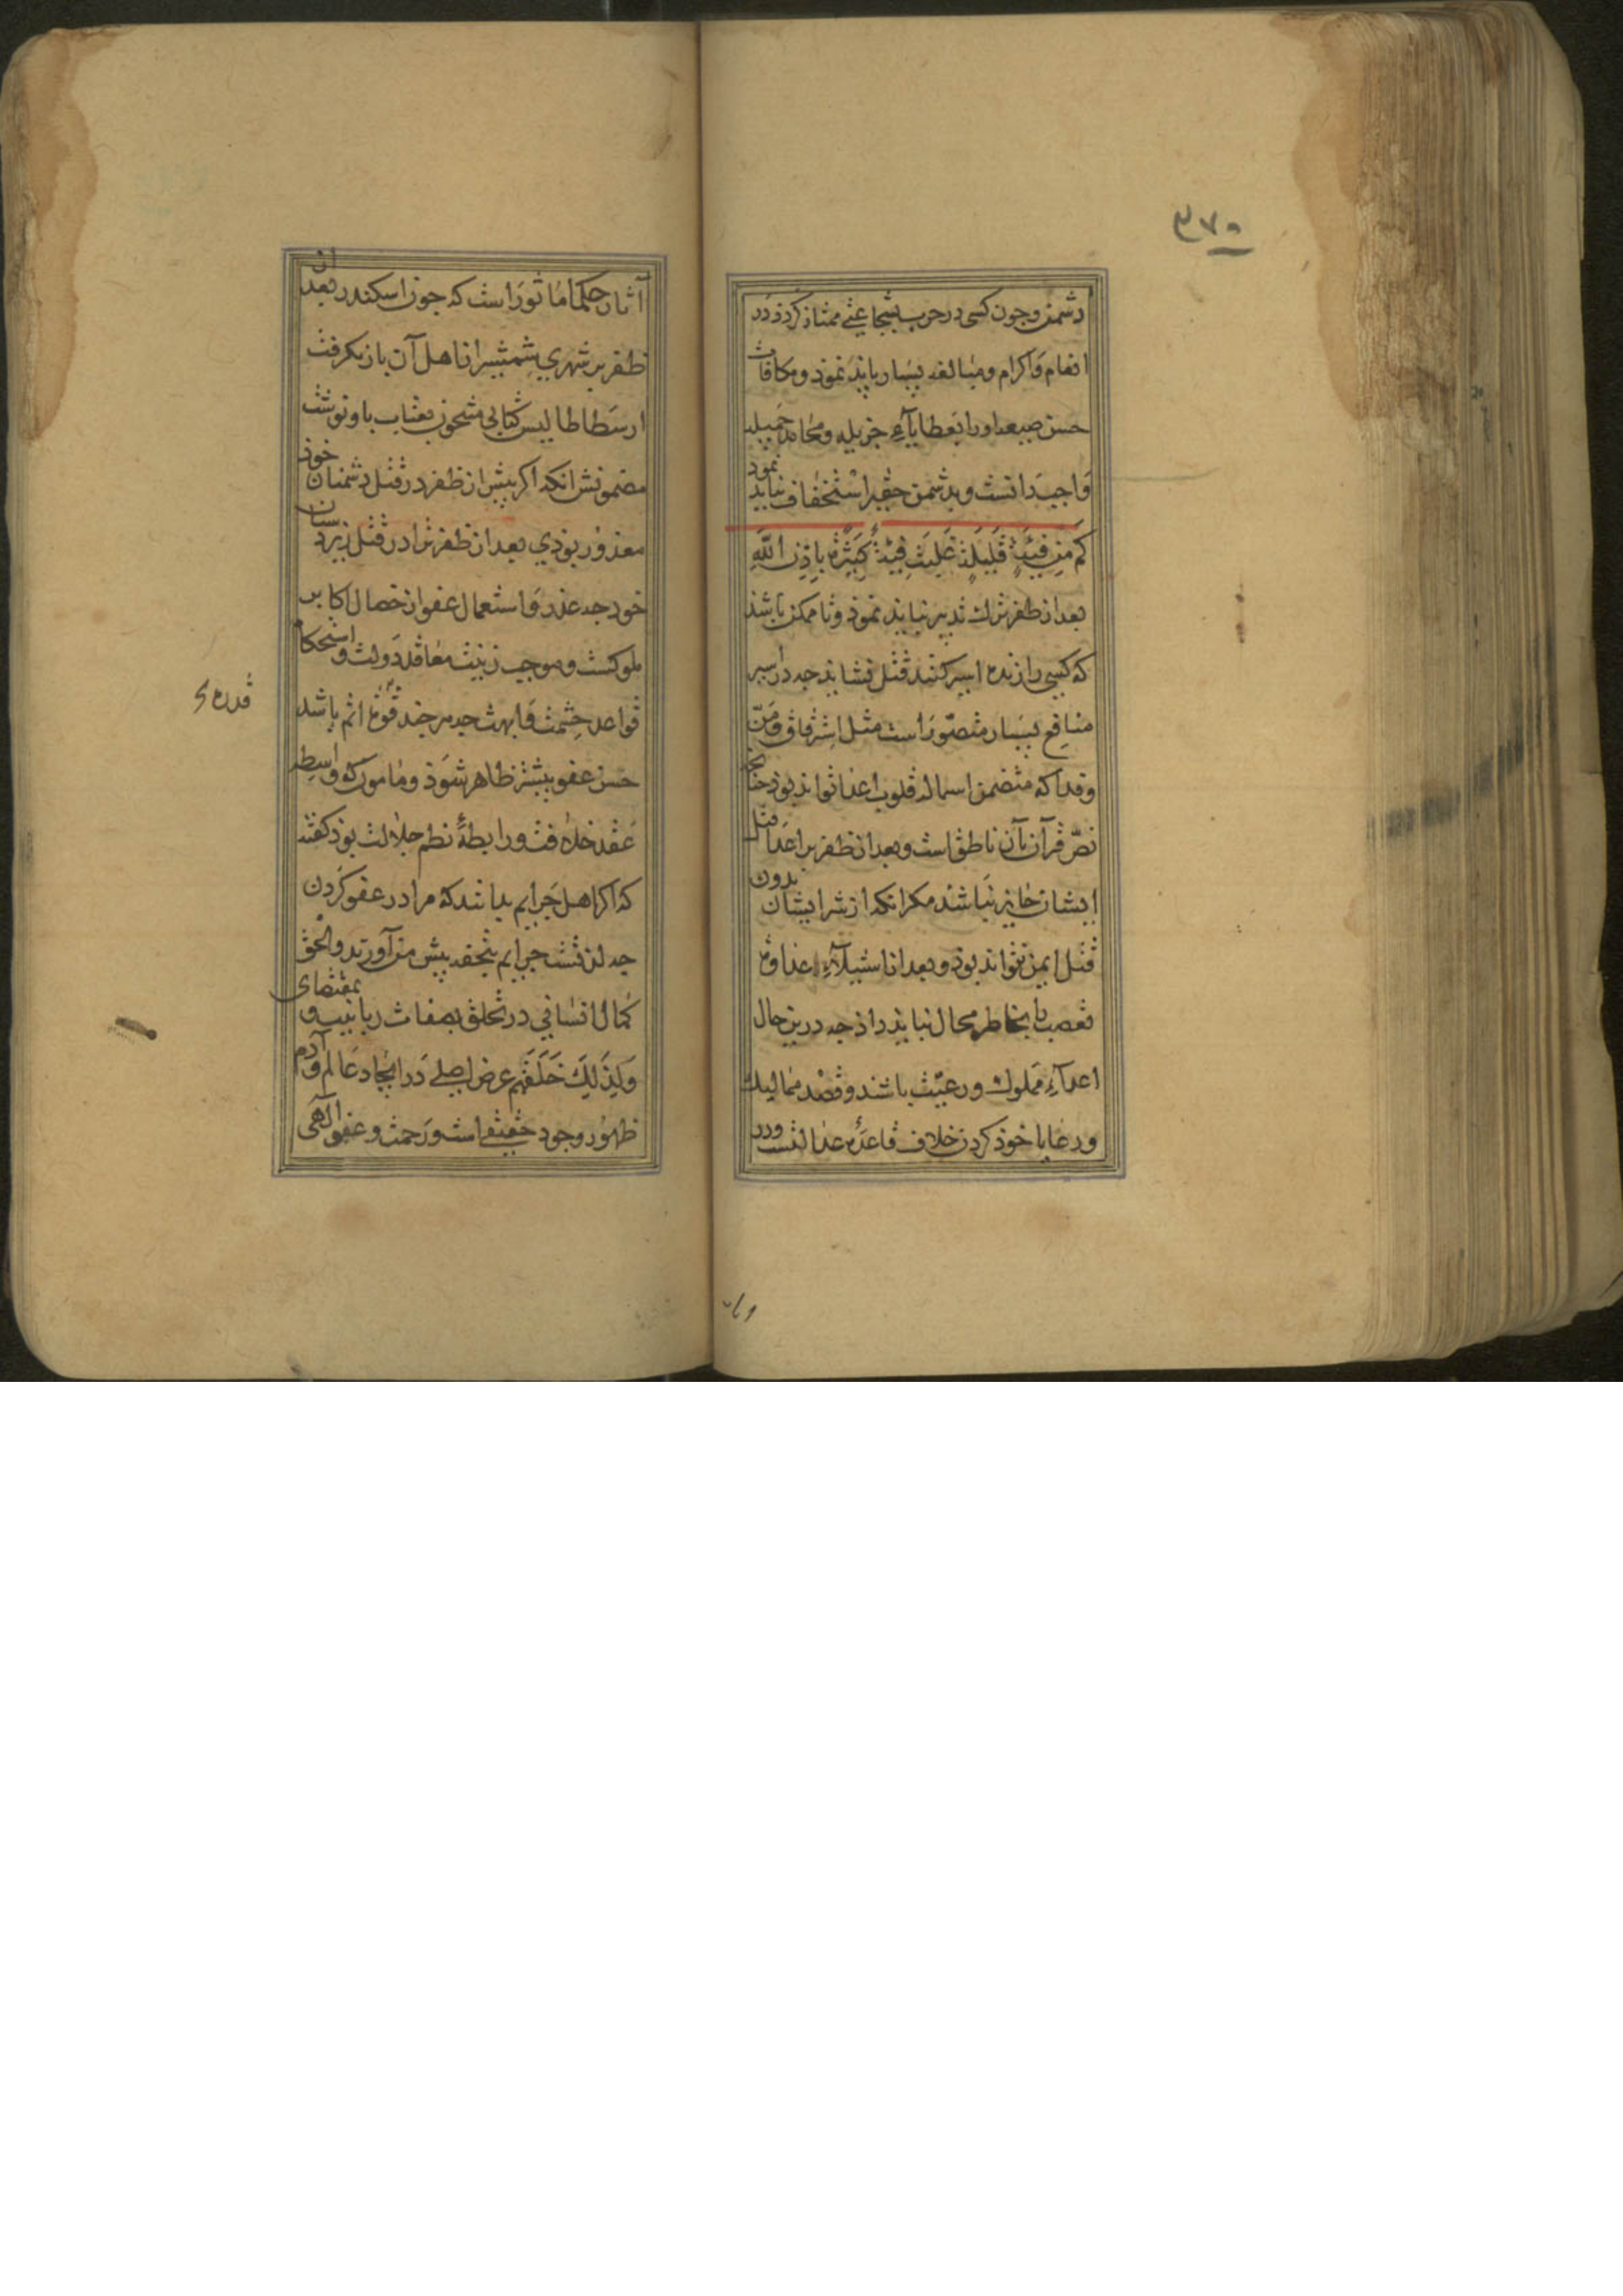 ٣٧٥
دشمن وجون کسی در حرب بشجاعتی ممتاز کردذ در
انعام و اکرام ومبالغه بسیار باید نموذ ومکافات
حسن صیعه اورا بعطایاء جزیله ومحامد جمیله
واجب دانست وبدشمن حقیر استخفاف نباید نمود
کم من فیئة قلیلة غلبت فیئة کثیرة باذن الله
بعد از ظفر ترك تدبیر نباید نموذ وتا ممکن باشذ
که کسی را زنده اسیر کنند قتل نشاید جه در اسیر
منافع بسیار متصور است مثل استرقاق ومن
وفدا که متضمن استماله قلوب اعدا تواند بوذ جنانجه
نص قرآن بآن ناطق است وبعد از ظفر بر اعدا قتل
ایشان جایز نباشد مکر انکه از شر ایشان بدون
قتل ایمن نتواند بوذ وبعد از استیلاء عداوة
تعصب بخاطر مجال نباید داذ جه درین حال
اعداء مملوك ورعیت باشند وقصد ممالیك
ورعایا خوذ کردن خلاف قاعدۀ عدالتست ودر
آثار حکما ماثور است که جون اسکندر بعد از
ظفر بر شهری شمشیر از اهل آن باز نکرفت
ارسطاطالیس کتابی مشحون بعتاب باو نوشت
مضمونش انکه اکر بیش از ظفر در قتل دشمنان خوذ
معذور بوذی بعد از ظفر ترا در قتل زیردستان
خود جه عذر واستعمال عفو از خصال اکابر
ملوکست وموجب زینت معاقد دولت واستحکام
قواعد حشمت وابهت جه هر جند قوة اتم باشد
قدره
حسن عفو بیشتر ظاهر شوذ ومامون که واسطه
عقد خلافت ورابطۀ نظم جلالت بوذ کفته
که اکر اهل جرایم بدانند که مرا در عفو کردن
جه لذتست جرایم بتحفه بیش من آورند والحق
کمال انسانی در تخلق بصفات ربانیه وبمقتضای
ولذلك خلقهم عرض اصلی در ایجاد عالم وآدم
ظهور وجود حقیقی است ورحمت وعفو الهی